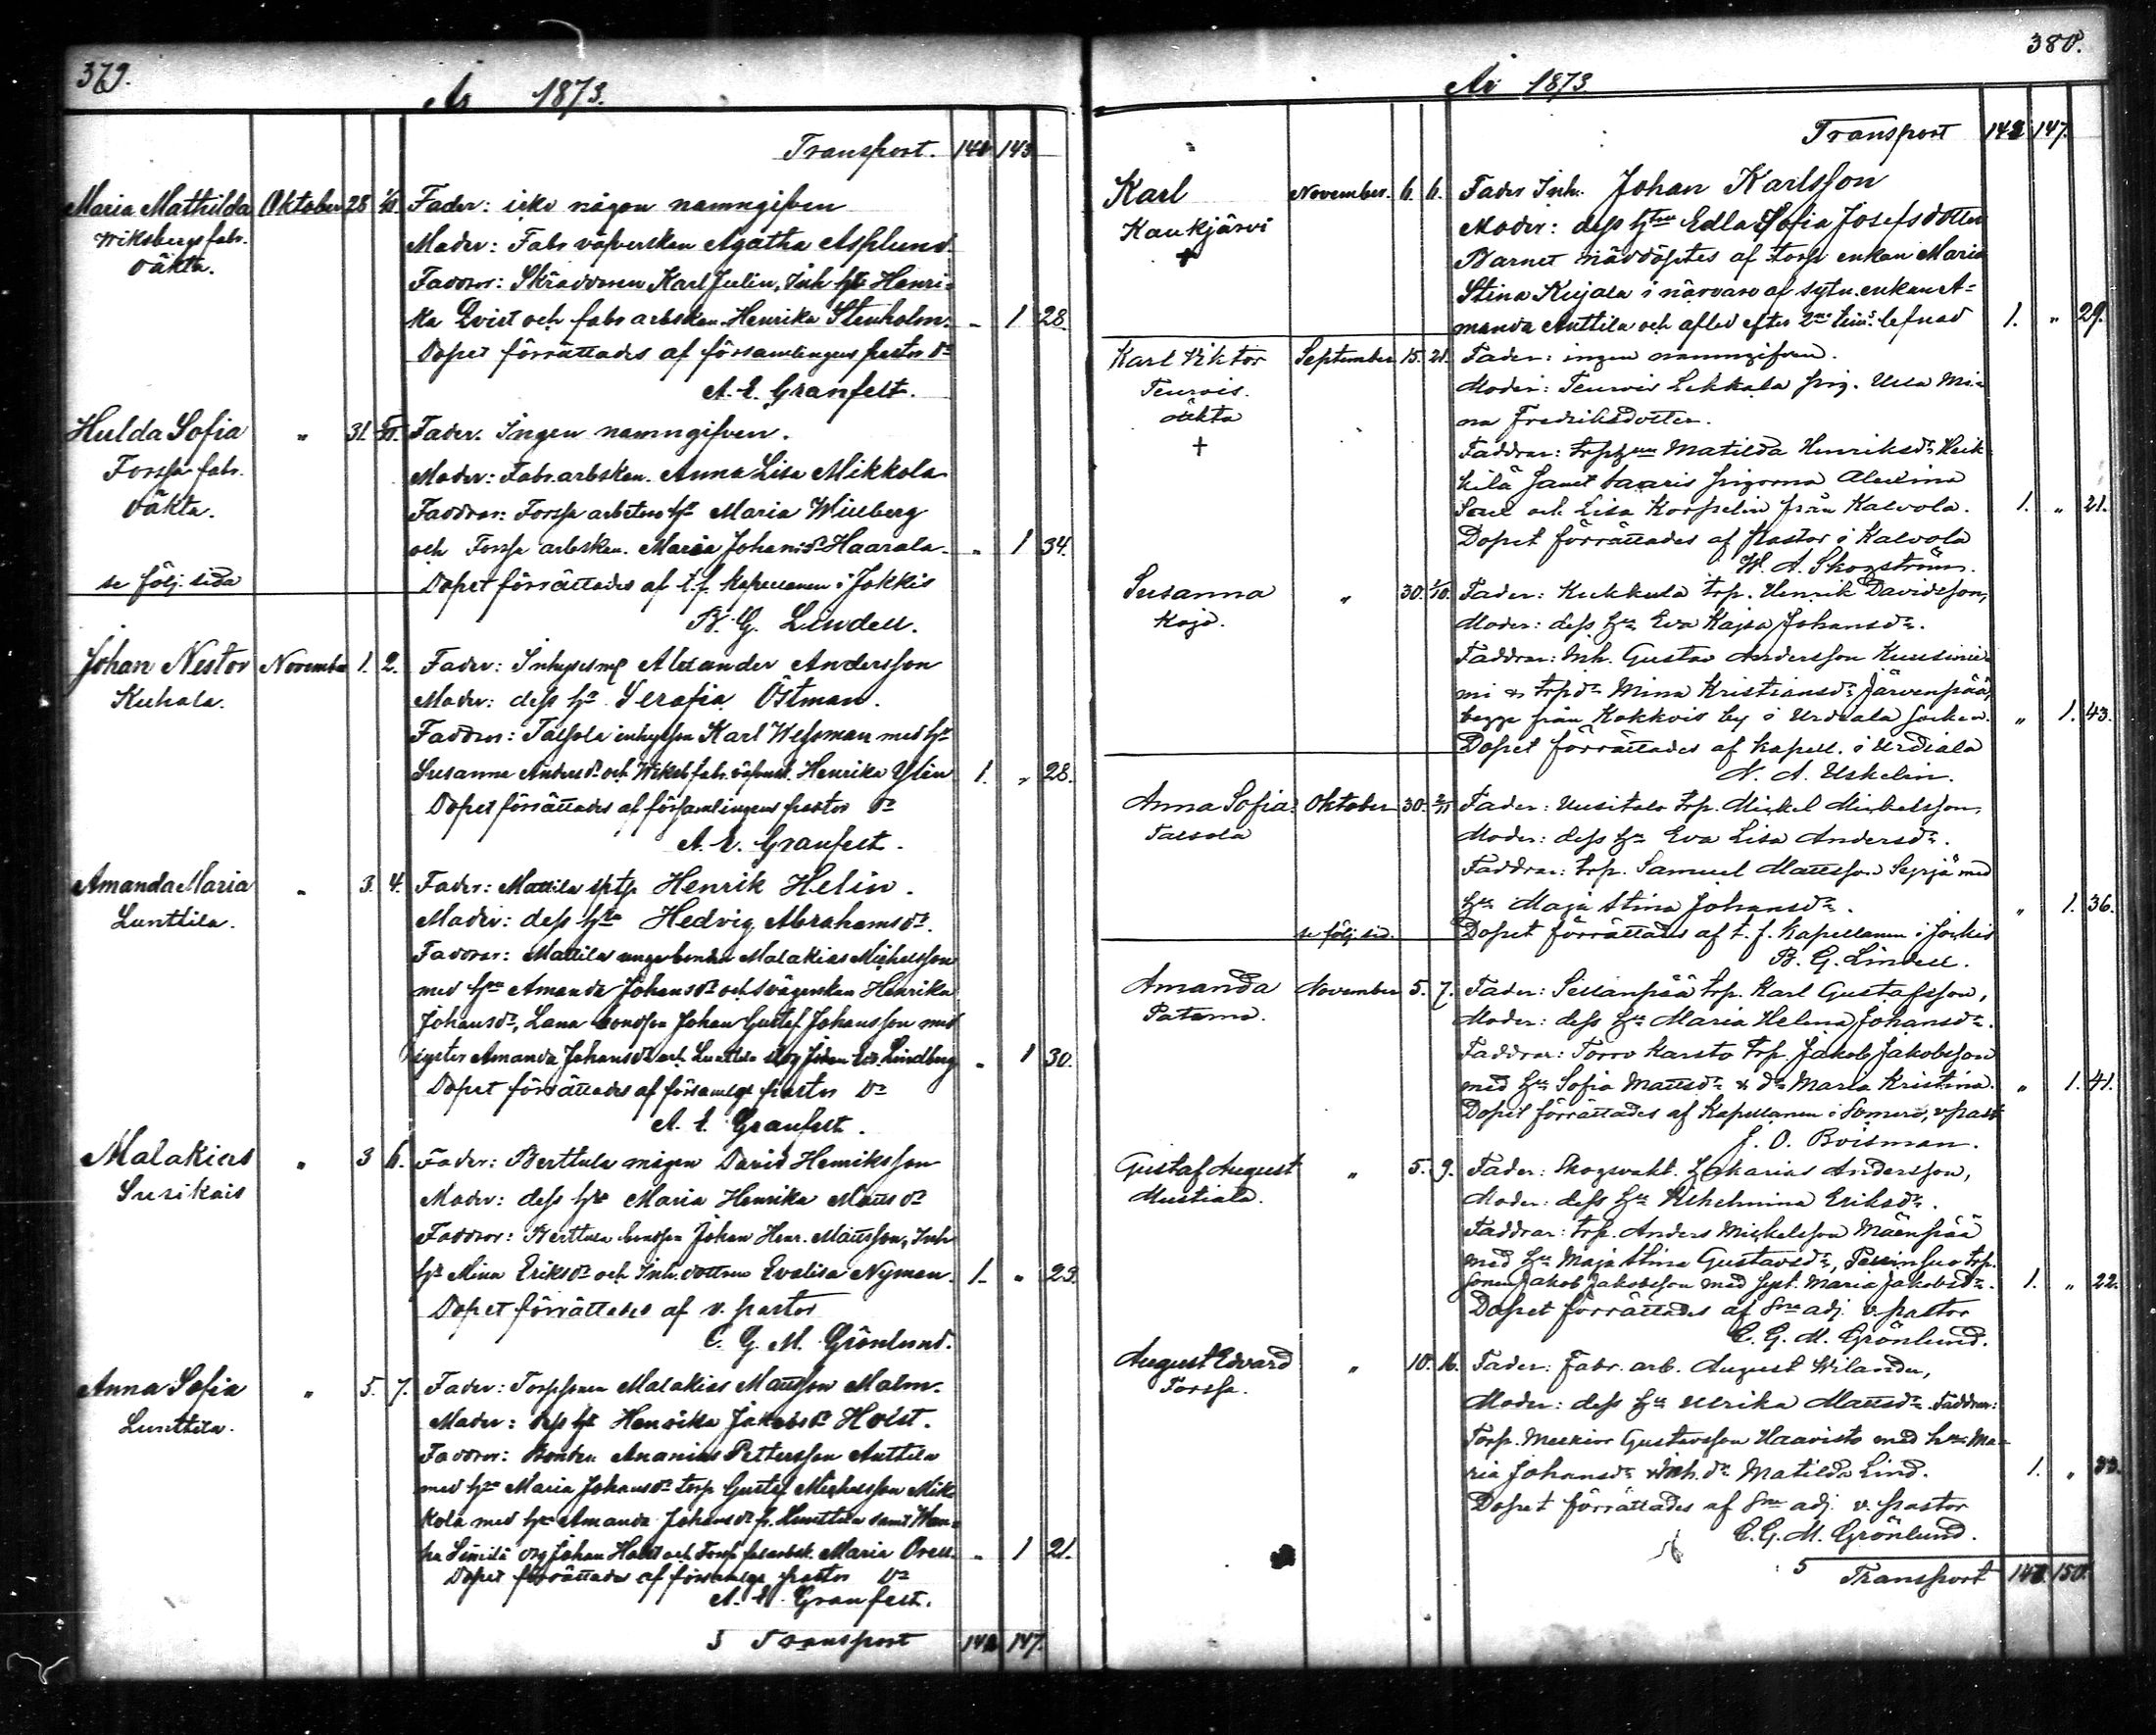 379.
År 1873.
Transport. 140 143
Maria Mathilda Oktober 28 1/11. Fader: icke någon namngifven
Wiksbergs fabr. Moder: Fabr. väfverskan Agatha Asplund.
oäkta.
Faddrar: Skräddaren Karl Julin, Inh. h:u Henri-
ka Qvist och fabr. arbskan Henrika Stenholm. " 1 28.
Dopet förrättades af församlingens pastor Dr
A. E. Granfelt.
Hulda Sofia " 31. Fader. Ingen namngifven.
Forssa fabr. Moder: Fabr. arbskan. Anna Lisa Mikkola
oäkta. Faddrar: Forssa arbetare h:u Maria Winberg
och Forssa arbskan. Maria Johansdr Haarala. " 1 34.
se följ. sida Dopet förrättades af t. f. kapellanen i Jokkis
B. G. Lindell.
Johan Nestor November 1. 2. Fader: Inhysesm. Alexander Andersson
Kuhala. Moder: dess h:u Serafia Östman.
Faddrar: Talsola inhyses Karl Wessman med h:u
Susanna Andersdr och Wiksb. fabr. väfversk. Henrika Ylén 1. " 28.
Dopet förrättades af församlingens pastor Dr
A. E. Granfelt.
Amanda Maria " 3. 4. Fader: Mattila Henrik Helin.
Lunttila. Moder: dess h:u Hedvig Abrahamsdr.
Faddrar: Mattila unga bonden Malakias Michelsson
med h:u Amanda Johansdr och svägerskan Henrika
Johansdr, Lana bondson Johan Gustaf Johansson med
syster Amanda Johansdr och Lunttila Lindberg " 1 30.
Dopet förrättades af församlgs pastor Dr
A. E. Granfelt.
Malakias " 3 6. Fader: Berttula mågen David Henriksson
Susikais Moder: dess h:u Maria Henrika Mattsdr
Faddrar: Berttula bondson Johan Henr. Mattsson, Inh.
h:u Mina Eriksdr och Inh. dottren Evalisa Nyman. 1. " 23.
Dopet förrättades af v. pastor
C. G. M. Grönlund.
Anna Sofia " 5. 7. Fader: Torpsonen Malakias Mattsson Malm.
Lunttila. Moder: dess h:u Henrika Jakobsdr Holst.
Faddrar: Bonden Ananias Pettersson Anttila
med h:u Maria Johansdr torp. Gustaf Michelsson Mik-
kola med h:u Amanda Johansdr fr. Lunttila samt
Johan Holst och Forssa fabr. arbsk. Maria Orell. " 1 21.
Dopet förrättades af församlgs pastor Dr
A. E. Granfelt.
5 Transport 142 147.
380.
År 1873
Transport 142 147.
Karl November. 6. 6. Fader Inh. Johan Karlsson
Kaukjärvi Moder: dess h:tru Edla Sofia Josefsdotter
+ Barnet nöddöptes af torp. enkan Maria
Stina Kujala i närvaro af sytn. enkan A-
manda Anttila och afled efter 2ne tim:s lefnad 1. " 29.
Karl Viktor September 15. 21. Fader: ingen namngifven.
Teurois. Moder: Teurois Lekkala pig. Ulla Mi-
oäkta na Fredriksdotter.
+ Faddrar: Matilda Henriksdr Heik-
kilä samt Saaris pigorna Alexina
och Lisa Korpelin från Kalvola. 1. " 21.
Dopet förrättades af Pastor i Kalvola
W. A. Skogström.
Susanna " 30. 1/10. Fader: Kukkula trp. Henrik Davidsson,
Kojo. Moder: dess h:u Eva Kajsa Johansdr.
Faddrar: Inh. Gustav Andersson Kuusinie-
mi & trpdr Mina Kristiansdr Järvenpää,
begge från Kokkois by i Urdiala socken. " 1. 43.
Dopet förrättades af kapell. i Urdiala
N. A. Uskelin.
Anna Sofia. Oktober 30. 2/11 Fader: Uusitalo trp. Mickel Mickelsson,
Talsola Moder: dess h:u Eva Lisa Andersdr.
Faddrar: trp. Samuel Mattsson Syrjä med
h:u Maja Stina Johansdr. " 1. 36.
se följ. sid. Dopet förrättades af t. f. Kapellanen i Jockis
B. G. Lindell.
Amanda November 5. 7. Fader: Sillanpää trp. Karl Gustafsson,
Patamo. Moder: dess h:u Maria Helena Johansdr.
Faddrar: Torro Karsto trp. Jakob Jakobsson
med h:u Sofia Mattsdr & dr Maria Kristina. " 1. 41.
Dopet förrättades af Kapellanen i Somero, v. past.
J. O. Boisman.
Gustaf August " 5. 9. Fader: Skogsvakt. Zakarias Andersson,
Mustiala. Moder: dess h:u Wilhelmina Eriksdr.
Faddrar: trp. Anders Mickelsson Mäenpää
med h:u Maja Stina Gustavsdr, trp.
sonen Jakob Jakobsson med syst. Maria Jakobsdr. 1. " 22.
Dopet förrättades af S:ne adj. v. pastor
C. G. M. Grönlund.
August Edvard " 10. 16. Fader: Fabr. arb. August Wilander,
Forssa. Moder: dess h:u Ulrika Mattsdr. Faddrar:
Torp. Merkior Gustavsson Haavisto med h:u Ma-
ria Johansdr & Inh. dr Matilda Lind. 1. " 33.
Dopet förrättades af S:ne adj. v. pastor
C. G. M. Grönlund.
5 Transport 146. 150.